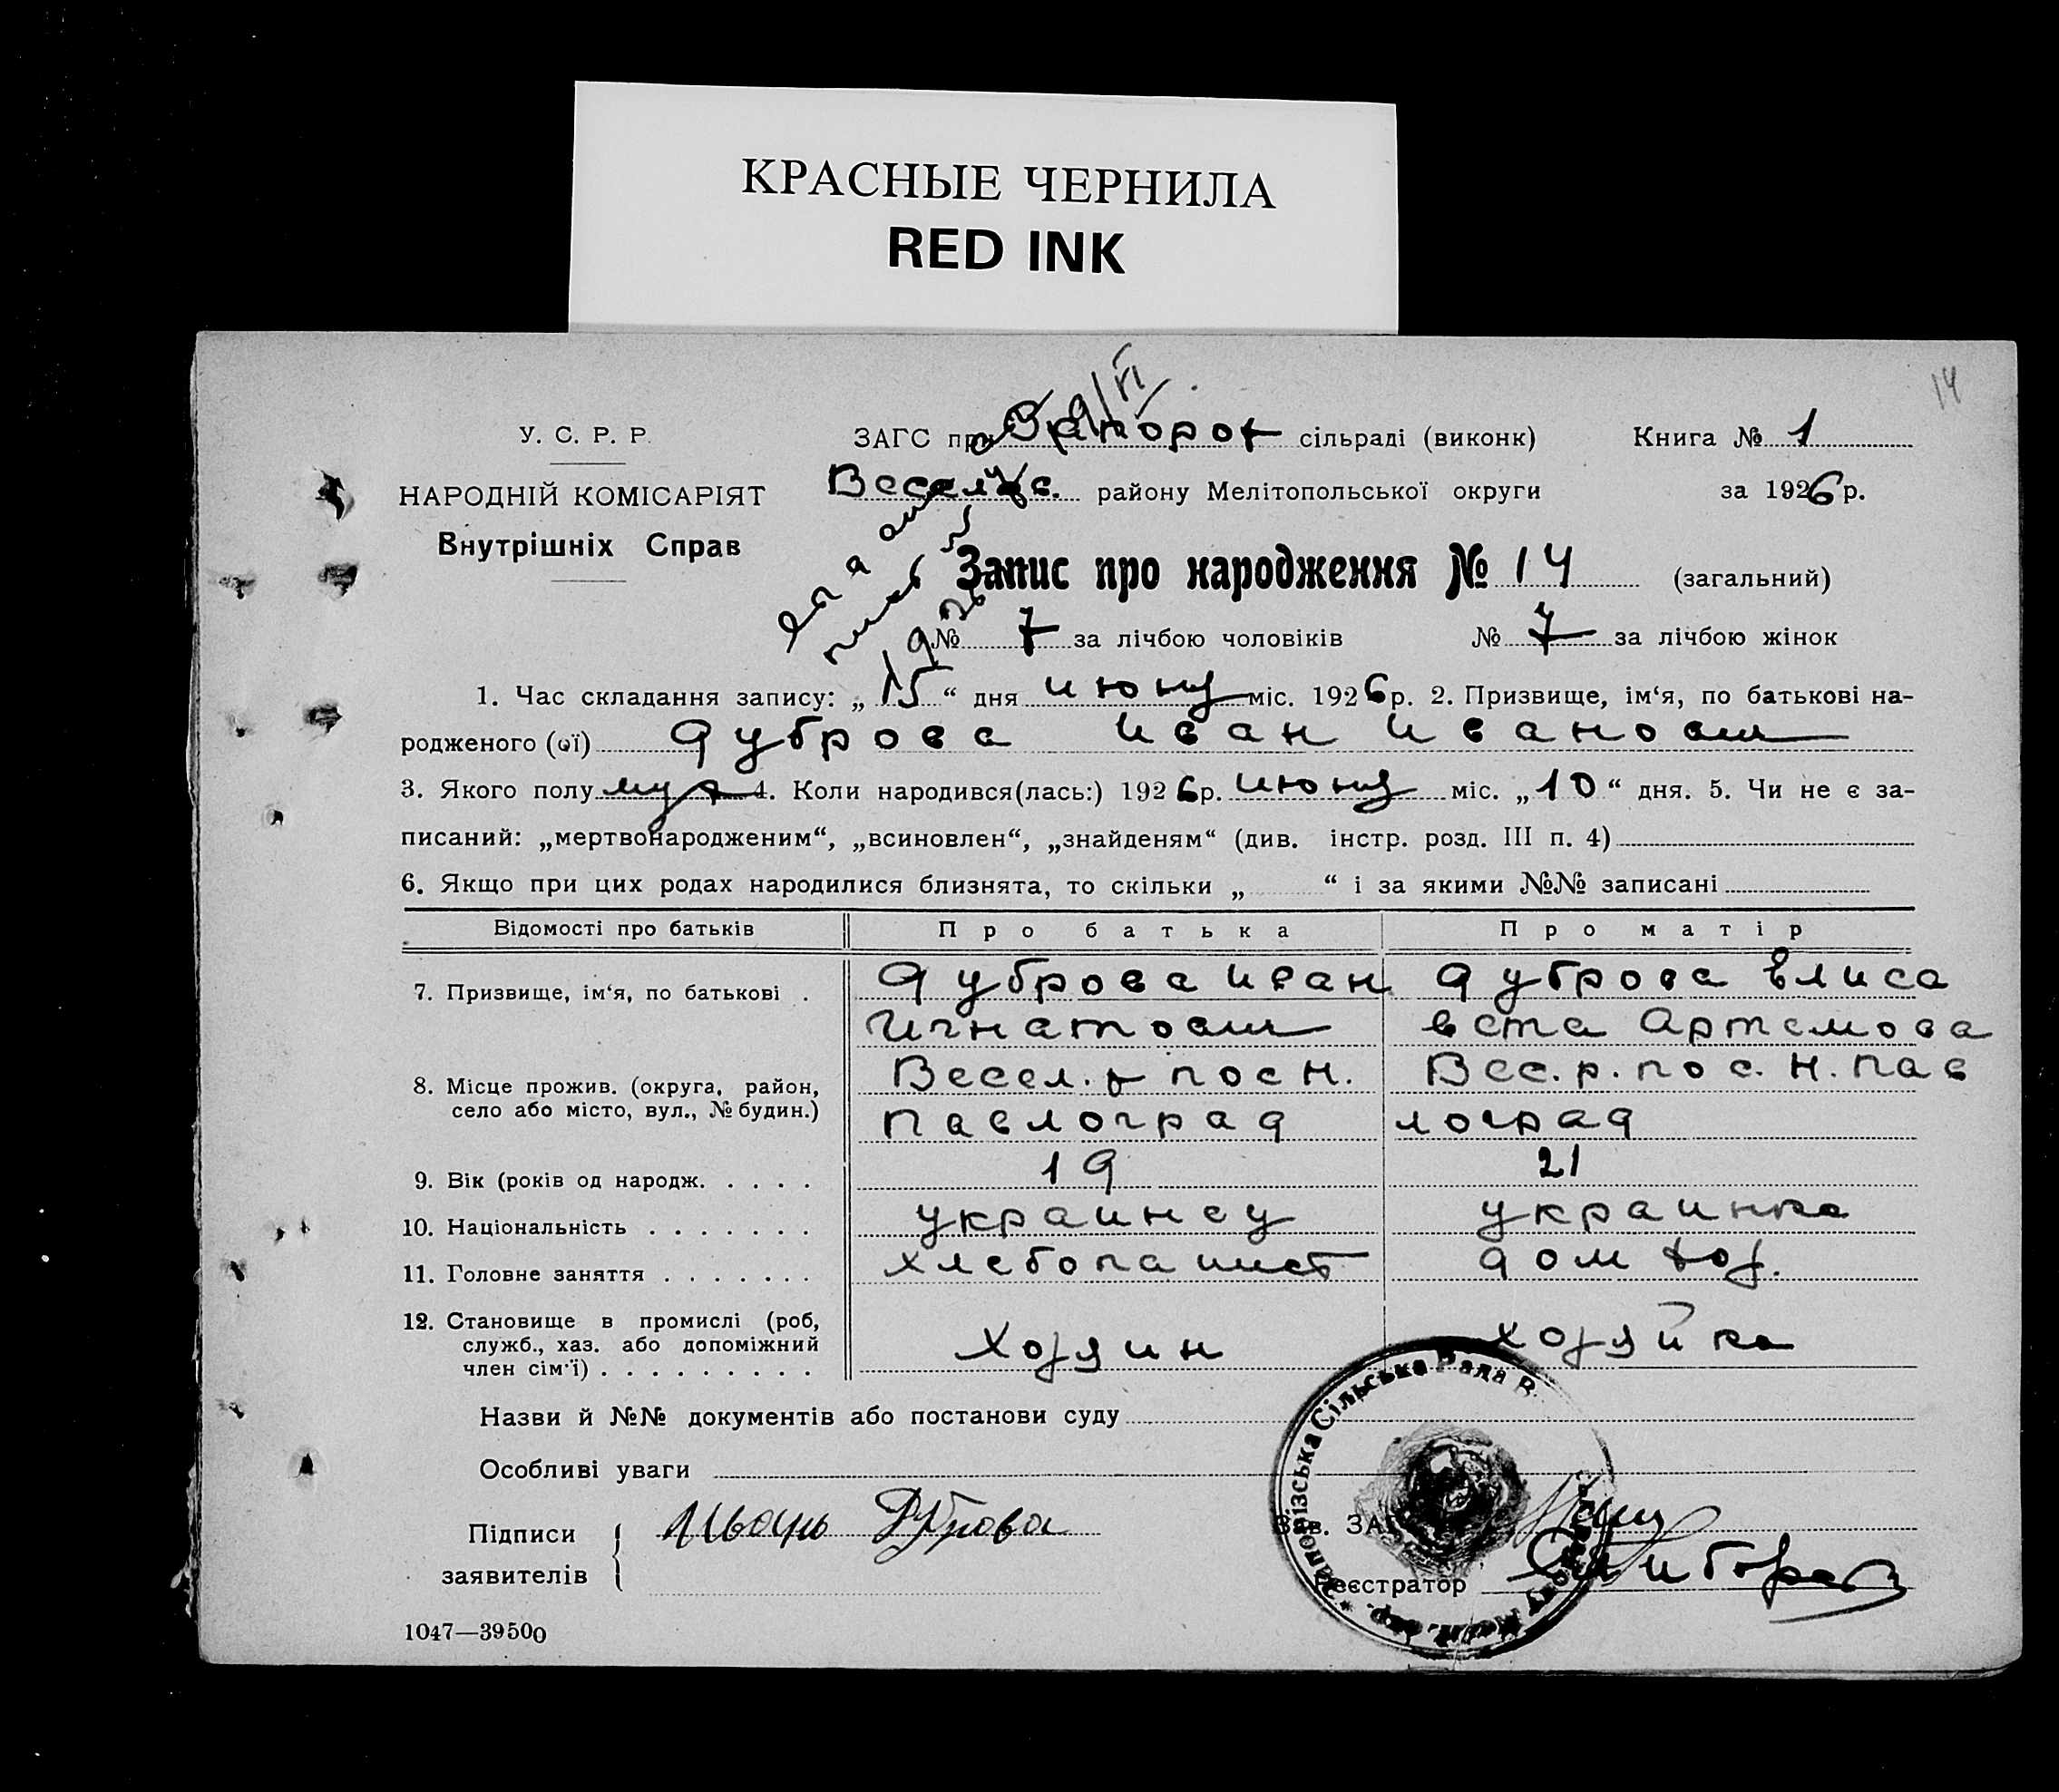 КРАСНЫЕ ЧЕРНИЛА
RED INK
14
У. С. Р. Р.
НАРОДНІЙ КОМІСАРІЯТ
Внутрішніх Справ
ЗАГС при Запорож сільраді (виконк) Книга № 1
Весел району Мелітопольської округи за 1926 р.
Запис про народження № 14 (загальний)
№ 7 за лічбою чоловіків № 7 за лічбою жінок
1. Час складання запису: „15“ дня июня міс. 1926 р. 2. Призвище, ім‘я, по батькові на-
родженого (ої) Дуброва Иван Иванович
3. Якого полу муж 4. Коли народився(лась:) 1926 р. июня міс. „10“ дня. 5. Чи не є за-
писаний: „мертвонародженим“, „всиновлен“, „знайденям“ (див. інстр. розд. III п. 4)
6. Якщо при цих родах народилися близнята, то скільки „ “ і за якими №№ записані
Відомості про батьків Про батька Про матір
7. Призвище, ім‘я, по батькові . Дуброва Иван Дуброва Елиса
Игнатович вета Артемова
8. Місце прожив. (округа, район, Весел. р пос Н. Вес. р. пос. Н. Пав
село або місто, вул., № будин.) Павлоград лоград
9. Вік (років од народж. . . . . 19 21
10. Національність . . . . . . . украинец украинка
11. Головне заняття . . . . . . . хлебопашест дом хоз.
12. Становище в промислі (роб,
служб., хаз. або допоміжний Хозяин хозяйка
член сім‘ї) . . . . . . . . .
Назви й №№ документів або постанови суду
Особливі уваги
Підписи Иванъ Дуброва
заявителів
Зав. ЗА
Реєстратор
Запорізська Сільська Рада В.
1047—39500